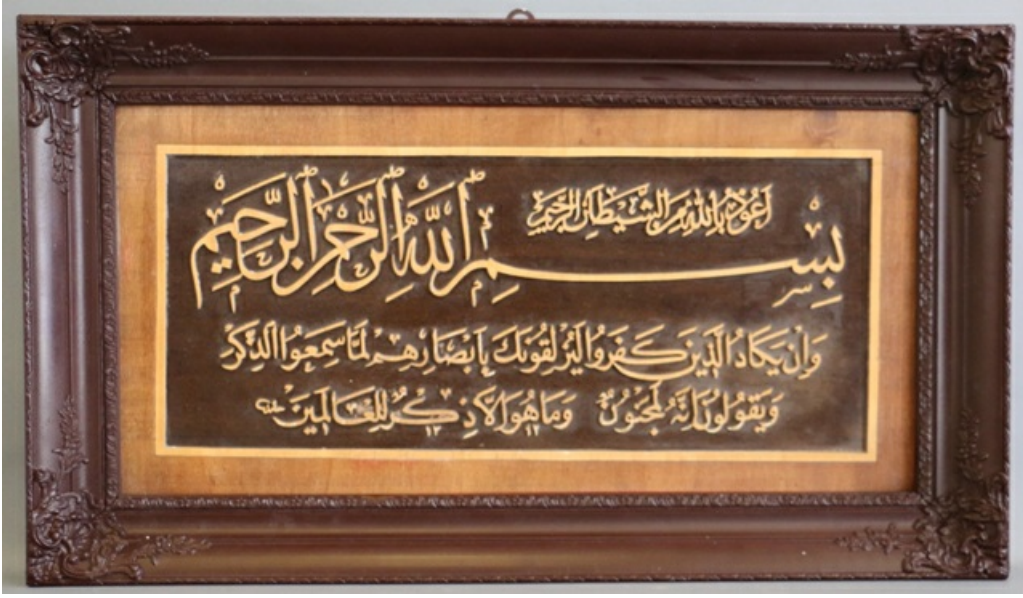 أَعُوذُ بِاللهِ مِنَ الشَّيْطَانِ الرَّجِيمِ
بِسْمِ اللهِ الرَّحْمٰنِ الرَّحِيمِ
وَاِنْ يَكَادُ الَّذِينَ كَفَرُوا لَيُزْلِقُونَكَ بِاَبْصَارِهِمْ لَمَّا سَمِعُوا الذِّكْرَ
وَيَقُولُونَ اِنَّهُ لَمَجْنُونٌ وَمَا هُوَ اِلَّا ذِكْرٌ لِلْعَالَمِينَ